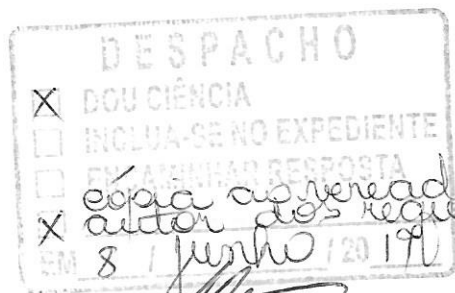 DESPACHO
X DOU CIÊNCIA
INCLUA-SE NO EXPEDIENTE
ENCAMINHAR RESPOSTA
cópia ao veread
X autor dos requ
EM 8 / junho / 20 17